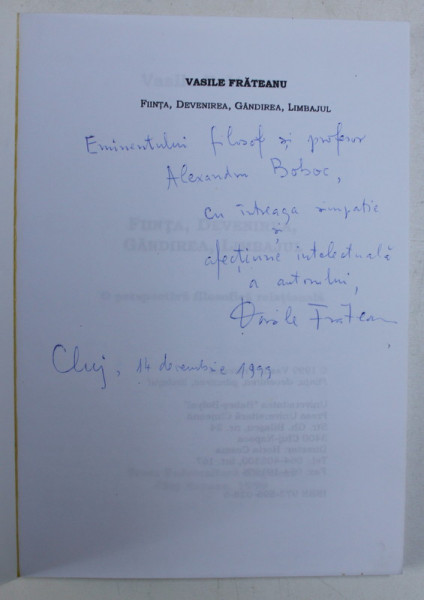 VASILE FRĂTEANU
FIINȚA, DEVENIREA, GÂNDIREA, LIMBAJUL
Eminentului filosof și profesor
Alexandru Boboc,
cu întreaga simpatie
și
afecțiune intelectuală
a autorului,
Vasile Frăteanu
Cluj, 14 decembrie 1999